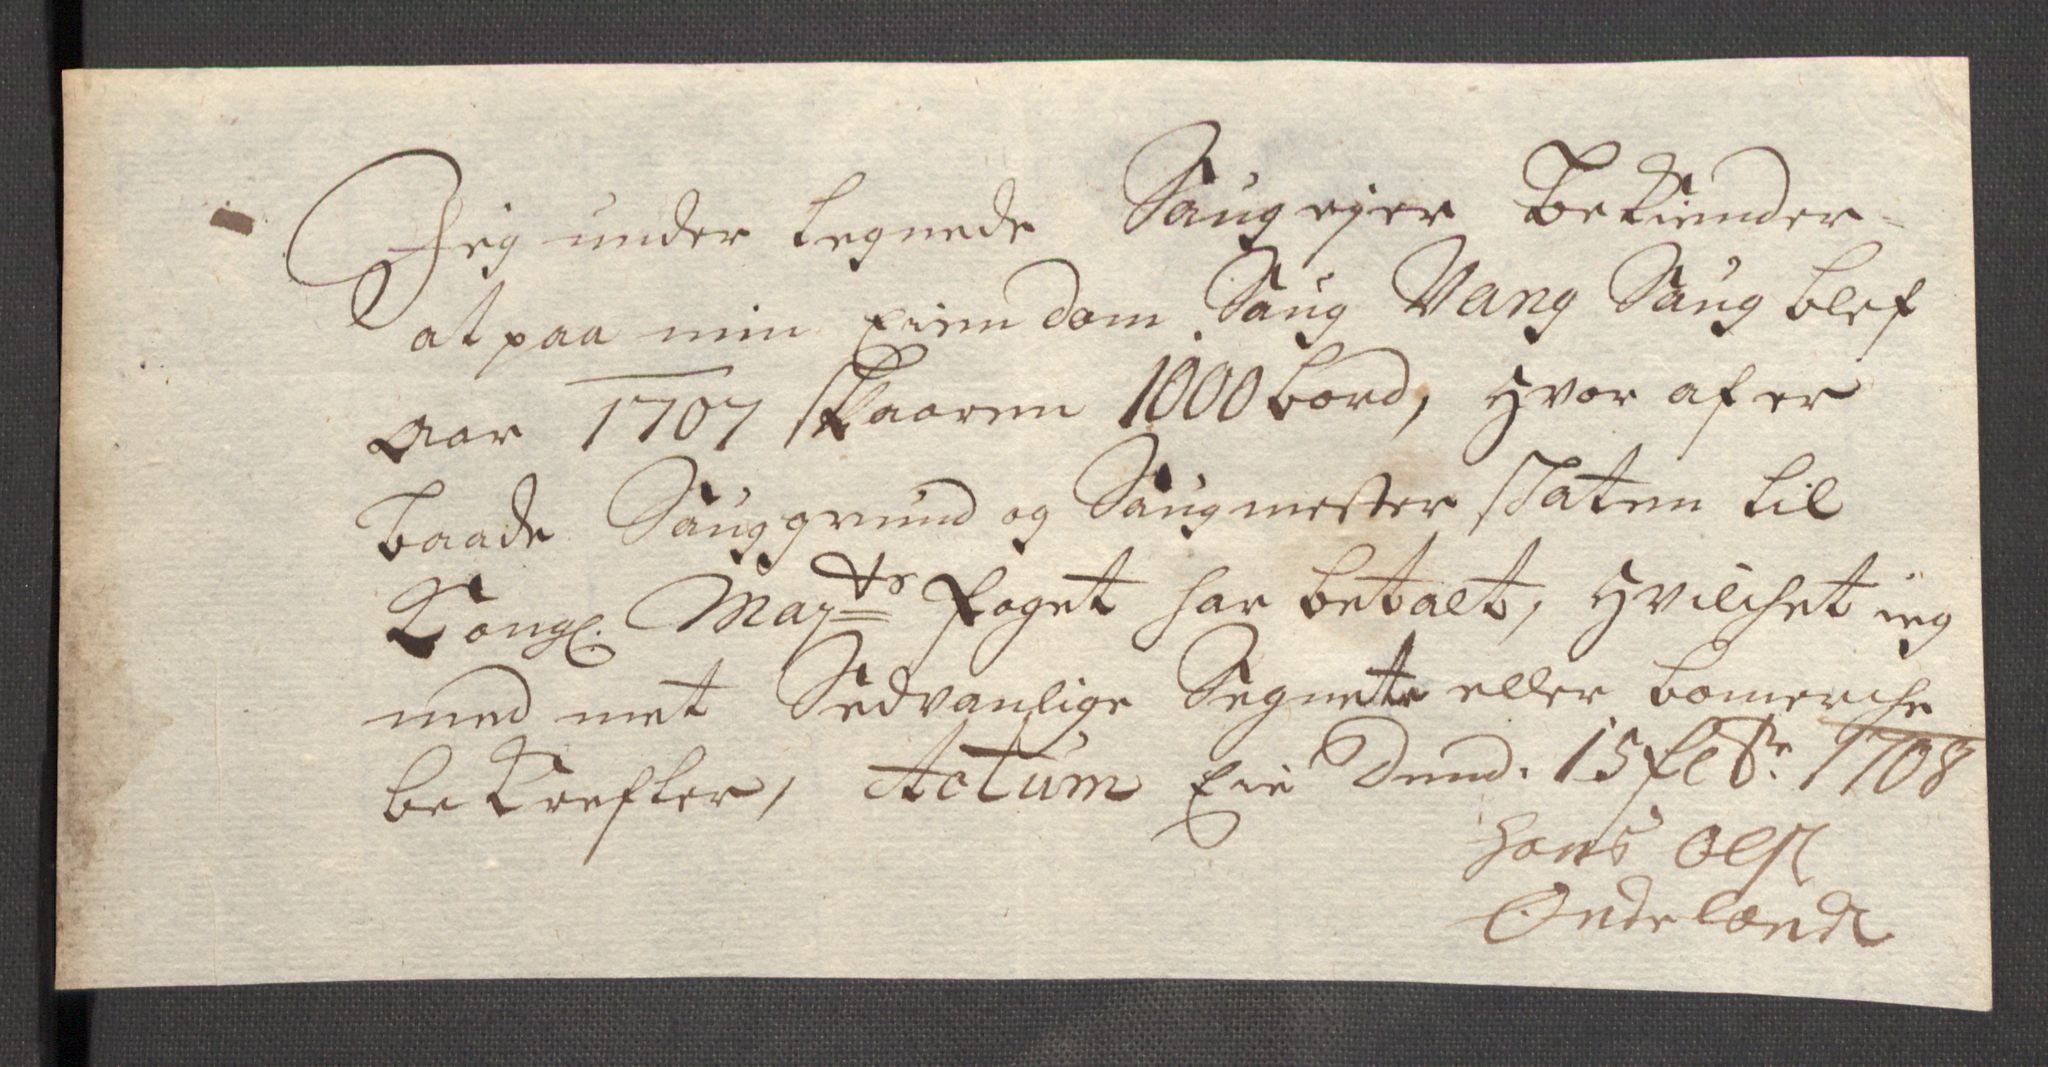 Jeg under tegnede Saug ejer Bekiender
at paa min Eiendom Saug Vang Saug blef
aar 1707 skaaren 1000 bord, hvor af er
baade Sauggrund og Saugmester skaten til
Kongl. May:ts foget har betalt, hvilchet ieg
med met Sedvanlige Segnete eller bomerche
bekrefter, Actum Eie Dend. 15 febr: 1708
Hans Ols